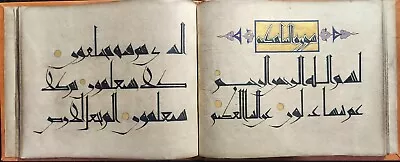 سورة النبا مكية
بسم الله الرحمن الرحيم
عم يتساءلون عن النبا العظيم
الذي هم فيه مختلفون
كلا سيعلمون ثم كلا
سيعلمون الم نجعل الارض